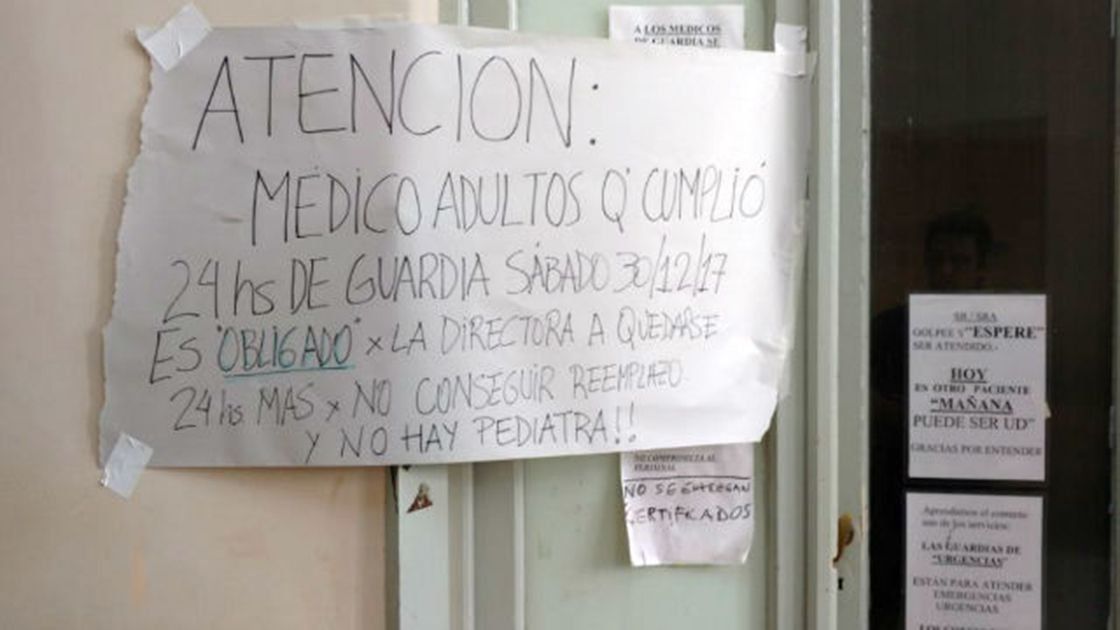 ATENCION:
MÉDICO ADULTOS Q' CUMPLIÓ
24 hs DE GUARDIA SÁBADO 30/12/17
ES "OBLIGADO" x LA DIRECTORA A QUEDARSE
24 hs MAS x NO CONSEGUIR REEMPLAZO
Y NO HAY PEDIATRA!!
A LOS MEDICOS
DE GUARDIA SE
PERSONAL
NO SE ENTREGAN
CERTIFICADOS
SR/ SRA
GOLPEE Y "ESPERE"
SER ATENDIDO.-
HOY
ES OTRO PACIENTE
"MAÑANA
PUEDE SER UD"
GRACIAS POR ENTENDER
Aprendamos el correcto
uso de los servicios:
LAS GUARDIAS DE
"URGENCIAS"
ESTÁN PARA ATENDER
EMERGENCIAS
URGENCIAS